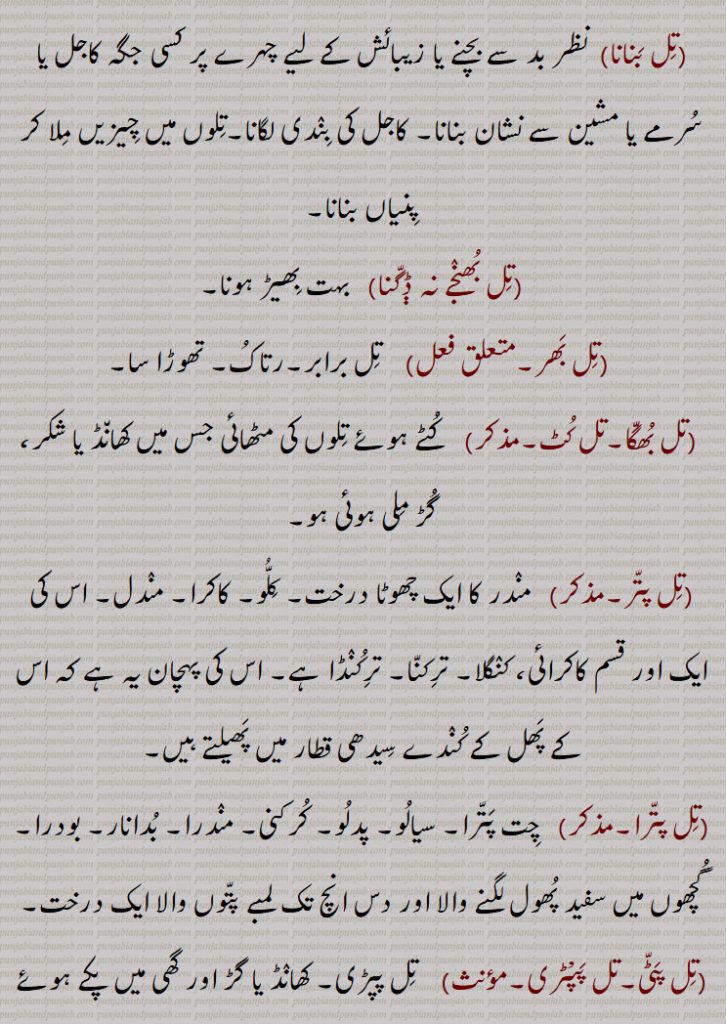 (تِل بَنانا) نظر بد سے بچنے یا زیبائش کے لیے چہرے پر کسی جگہ کاجل یا
سُرمے یا مشین سے نشان بنانا۔ کاجل کی بِنْدی لگانا۔تِلوں میں چِیزیں مِلا کر
پِنیاں بنانا۔
(تِل بُھنْجے نہ ڈِگّنا) بہت بِھیڑ ہونا۔
(تِل بَھر۔متعلق فعل) تِل برابر۔رتاکُ۔ تھوڑا سا۔
(تل بُھگّا۔تل کُٹ۔مذکر) کُٹے ہوئے تِلوں کی مٹھائی جس میں کھانْڈ یا شکر،
گُڑ مِلی ہوئی ہو۔
(تِل پتّر۔مذکر) منْدر کا ایک چھوٹا درخت۔ کِلُّو۔ کاکرا۔ منْدل۔ اس کی
ایک اور قسم کاکرائی، کنْگلا۔ ترِکنّا۔ ترکُنْڈا ہے۔ اس کی پہچان یہ ہے کہ اس
کے پَھل کے کُنْدے سِیدھی قطار میں پَھیلتے ہیں۔
(تِل پتّرا۔مذکر) چِت پَتّرا۔ سیالُو۔ پدلُو۔ کُرکنی۔ منْدرا۔ بُدانار۔ بودرا۔
گُچھوں میں سفید پُھول لگنے والا اور دس انچ تک لمبے پتّوں والا ایک درخت۔
(تِل پَٹّی۔تل پَپْڑی۔مؤنث) تِل پپڑی۔ کھانْڈ یا گڑ اور گھی میں پکے ہوئے